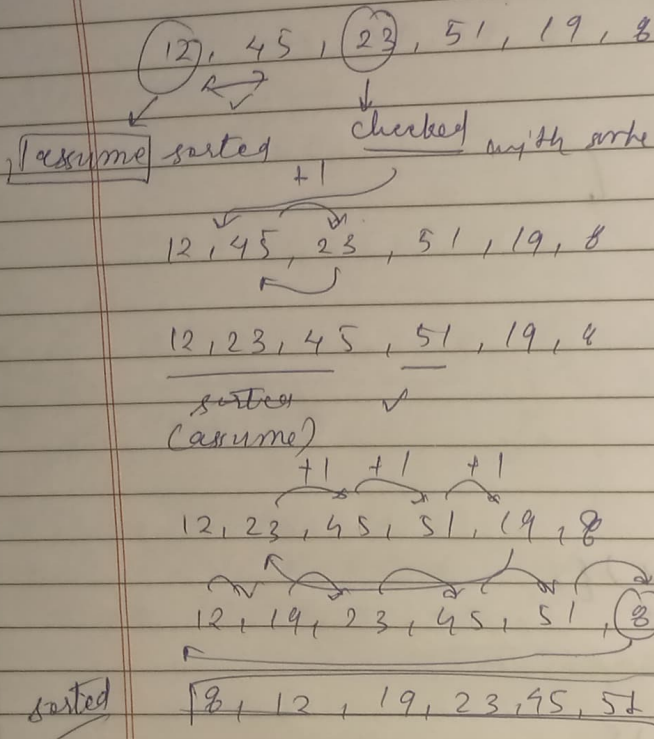 12, 45, 23, 51, 19, 8
assume sorted
checked with
+1
12, 45, 23, 51, 19, 8
12, 23, 45, 51, 19, 8
sorted
(assume)
+1 +1 +1
12, 23, 45, 51, 19, 8
12, 19, 23, 45, 51, 8
sorted 8, 12, 19, 23, 45, 51